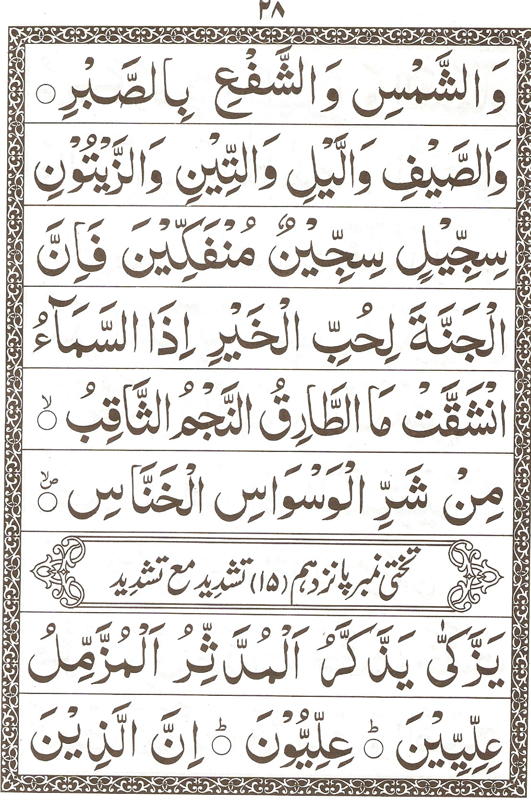 ٢٨
وَالشَّمْسِ وَالشَّفْعِ بِالصَّبْرِ ○
وَالصَّيْفِ وَالَّيْلِ وَالتِّيْنِ وَالزَّيْتُوْنِ
سِجِّيْلٍ سِجِّيْنٌ مُنْفَكِّيْنَ فَاِنَّ
الْجَنَّةَ لِحُبِّ الْخَيْرِ اِذَا السَّمَآءُ
انْشَقَّتْ مَا الطَّارِقُ النَّجْمُ الثَّاقِبُ ○ۙ
مِنْ شَرِّ الْوَسْوَاسِ الْخَنَّاسِ ○
تختی نمبر پانزدہم (١٥) تشدید مع تشدید
يَزَّكّٰى يَذَّكَّرُ اَلْمُدَّثِّرُ اَلْمُزَّمِّلُ
عِلِّيِّيْنَ ○ؕ عِلِّيُّوْنَ ○ؕ اِنَّ الَّذِيْنَ